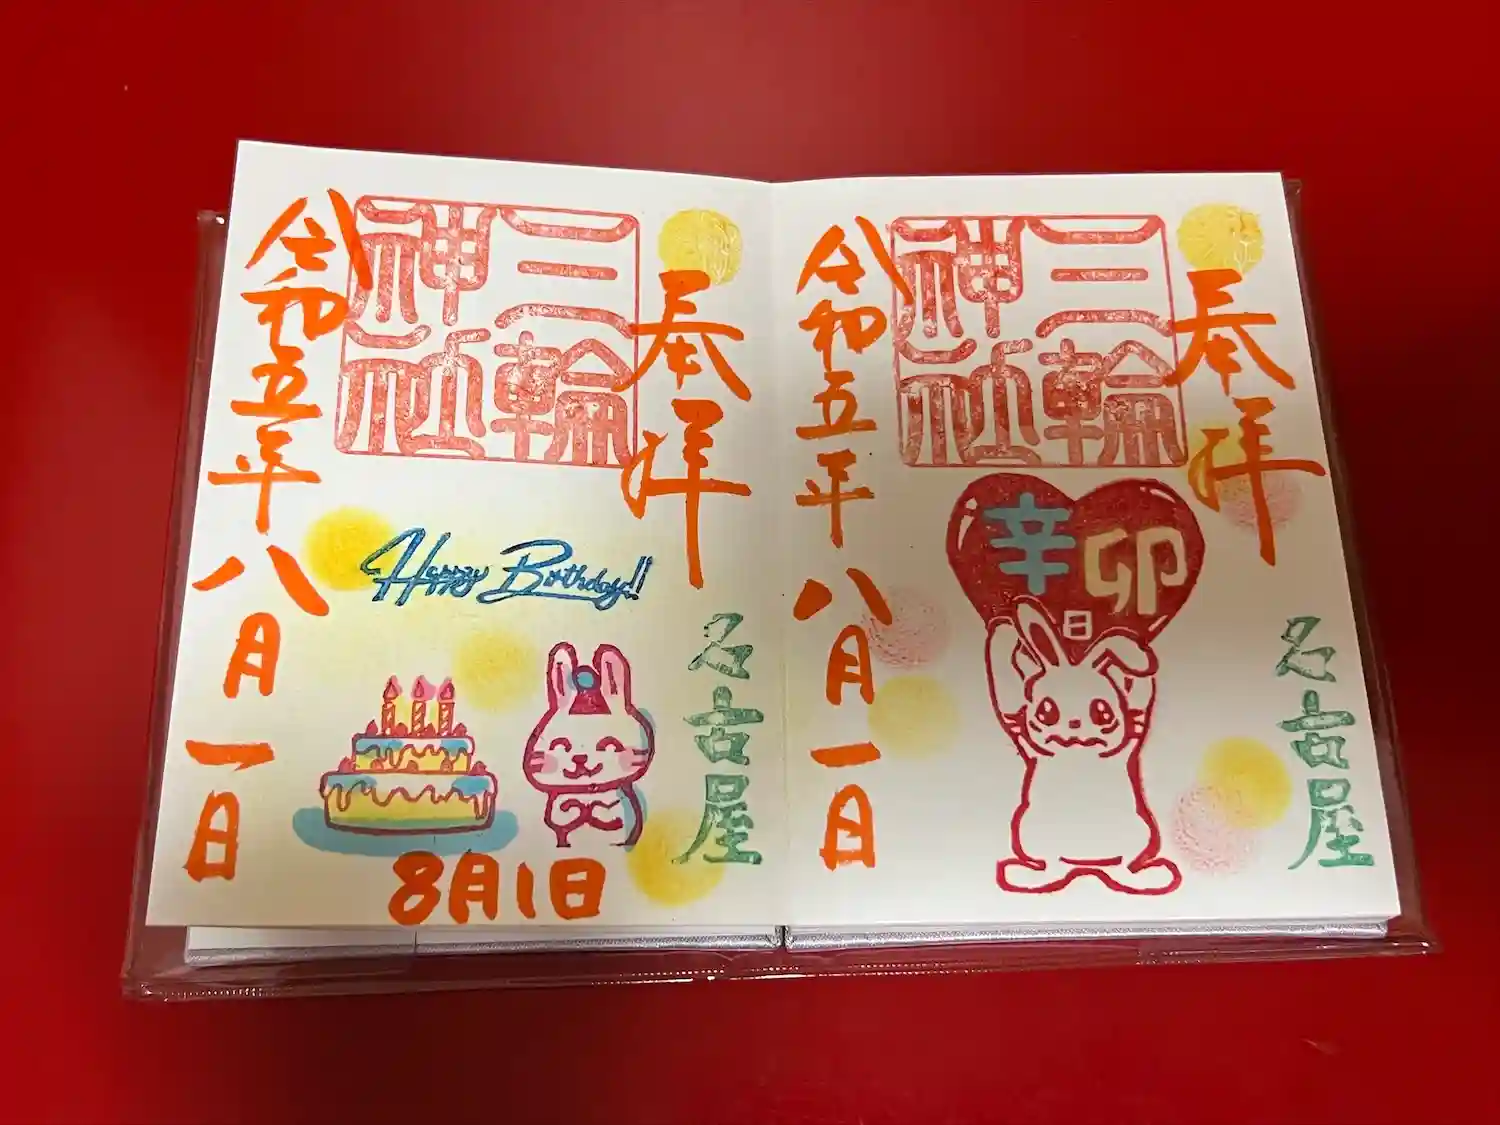 奉拝
三輪
神社
令和五年八月一日
辛卯
日
名古屋
奉拝
三輪
神社
令和五年八月一日
Happy Birthday!!
8月1日
名古屋